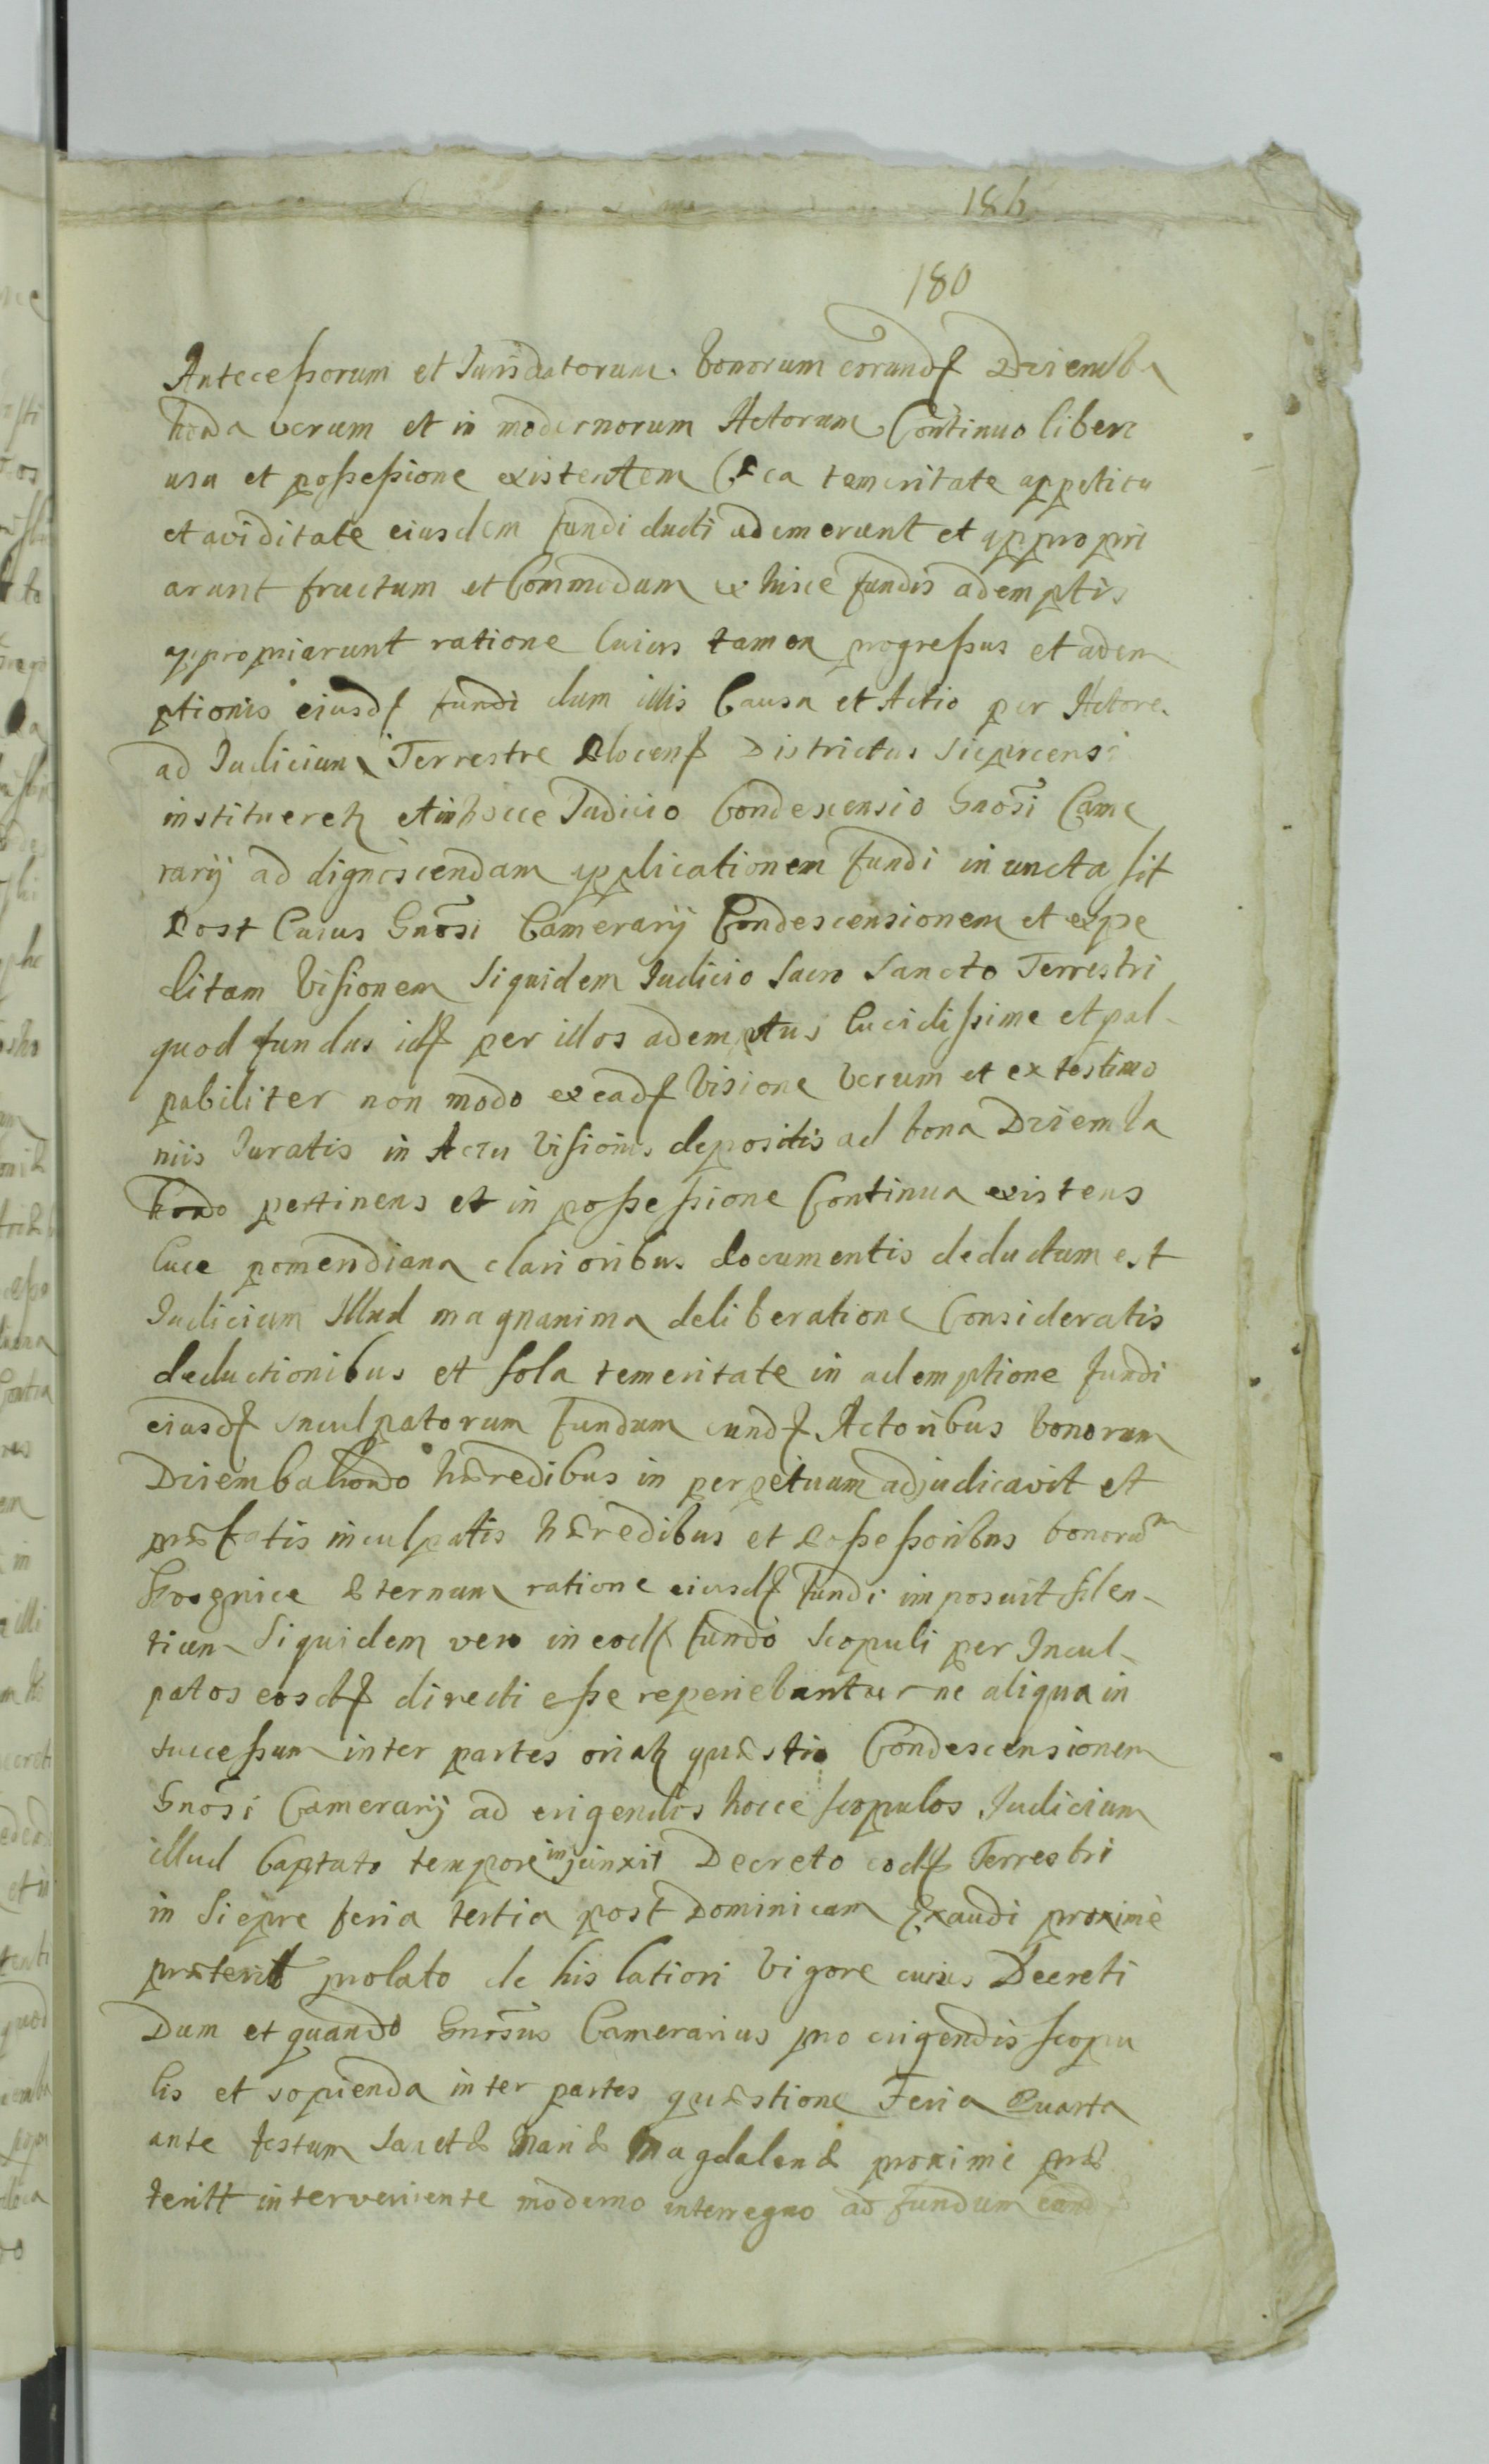 186
180
Antecessorum et Jurisdatorum bonorum eorundf Dziemba
konda verum et in modernorum Actorum Continuo libero
usu et possessione existentem ea temeritate appetitu
et aviditate eiusdem fundi ducti ademerunt et appropri
arunt fructum et Commodum ex hisce fundis ademptis
appropriarunt ratione Cuius tamen progressus et adem
ptionis eiusdf fundi dum illis Causa et Actio per Actore.
ad Judicium Terrestre Plocenf Districtus Sieprcensi
institueretz et in hocce Judicio Condescensio Gnosi Came
rarij ad dignoscendam applicationem fundi iniuncta sit
Post Cuius Gnosi Camerarij Condescensionem et expe
ditam Visionem Siquidem Judicio Sacro Sancto Terrestri
quod fundus idf per illos ademptus lucidissime et pal-
pabiliter non modo ex eadf Visione Verum et ex testimo
niis Juratis in Actu Visionis depositis ad bona Dziemba
kondo pertinens et in possessione Continua existens
luce pomeridiana clarioribus documentis deductum est
Judicium Illud magnanima deliberatione Consideratis
deductionibus et sola temeritate in ademptione fundi
eiusdf inculpatorum fundum eundf Actoribus bonorum
Dziembakondo hæredibus in perpetuum adjudicavit et
præfatis inculpatis hæredibus et Possessoribus bonorum
æternum ratione eiusdf fundi imposuit silen-
tium Siquidem vero in eodf fundo Scopuli per Incul-
patos eosdf directi esse reperiebantur ne aliqua in
successum inter partes oriatz quæstio Condescensionem
Gnosi Camerarij ad erigendos hocce scopulos Judicium
illud Captato tempore injunxit Decreto eodf Terrestri
in Siepre feria tertia post Dominicam Exaudi proximè
præterit prolato de his latiori Vigore cuius Decreti
Dum et quando Gnosus Camerarius pro erigendis scopu
lis et sopienda inter partes quæstione Feria Quarta
ante festum Sanctæ Mariæ Magdalenæ proxime præ
teritt interveniente moderno interregno ad fundum eund